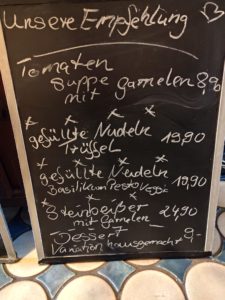 Unsere Empfehlung
Tomaten
suppe garnelen 8,90
mit
gefüllte Nudeln
Trüffel 19,90
gefüllte Nudeln
Basilikum Pesto Veggie 19,90
Steinbeißer
mit Garnelen 24,90
Dessert
Variation hausgemacht 9-